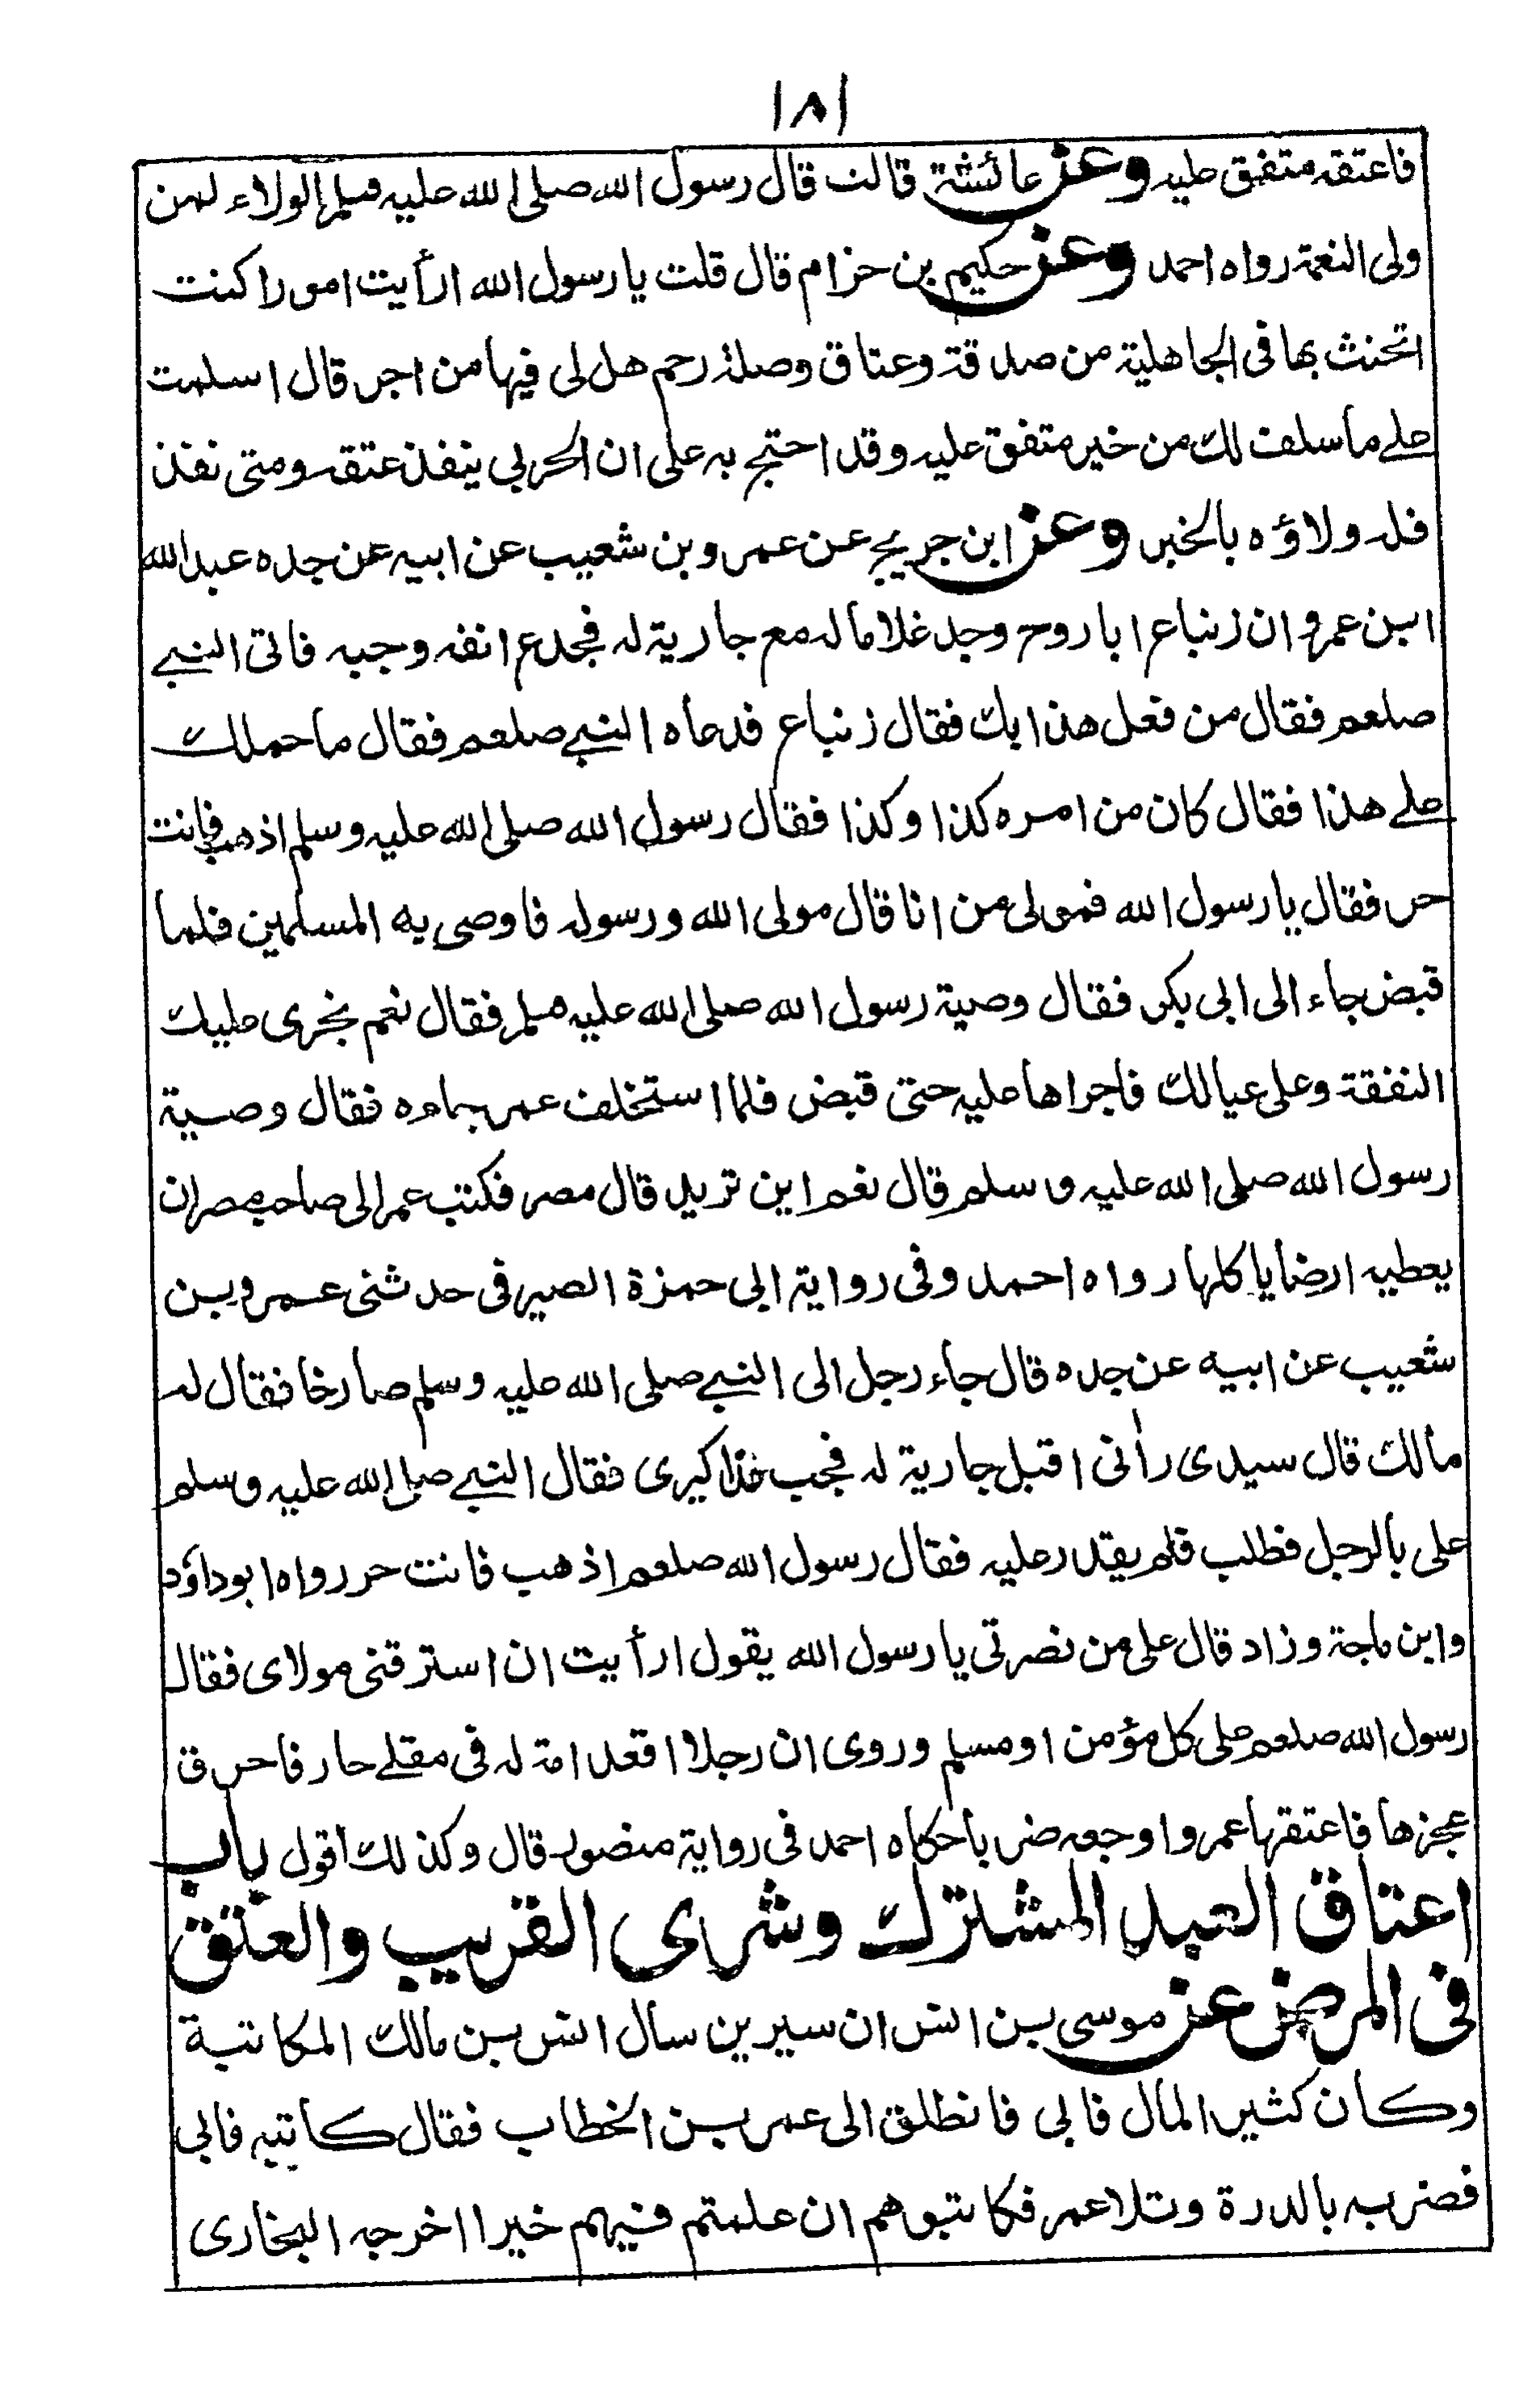 ١٨١
فاعتقه متفق عليه وعن عائشة قالت قال رسول الله صلى الله عليه وسلم الولاء لمن
ولى النعمة رواه احمد وعن حكيم بن حزام قال قلت يا رسول الله ارأيت امورا كنت
اتحنث بها فى الجاهلية من صدقة وعتاق وصلة رحم هل لى فيها من اجر قال اسلمت
على ما سلف لك من خير متفق عليه وقد احتج به على ان الحربى ينفذ عتقه ومتى نفذ
فله ولاؤه بالخبر وعن ابن جريج عن عمرو بن شعيب عن ابيه عن جده عبد الله
ابن عمرو ان زنباع ابا روح وجد غلاما له مع جارية له فجدع انفه وجبه فاتى النبى
صلعم فقال من فعل هذا بك فقال زنباع فدعاه النبى صلعم فقال ما حملك
على هذا فقال كان من امره كذا وكذا فقال رسول الله صلى الله عليه وسلم اذهب فانت
حر فقال يا رسول الله فمولى من انا قال مولى الله ورسوله فاوصى به المسلمين فلما
قبض جاء الى ابى بكر فقال وصية رسول الله صلى الله عليه وسلم فقال نعم نجرى عليك
النفقة وعلى عيالك فاجراها عليه حتى قبض فلما استخلف عمر جاءه فقال وصية
رسول الله صلى الله عليه وسلم قال نعم اين تريد قال مصر فكتب عمر الى صاحب مصر ان
يعطيه ارضا ياكلها رواه احمد وفى رواية ابى حمزة الصيرفى حدثنى عمرو بن
شعيب عن ابيه عن جده قال جاء رجل الى النبى صلى الله عليه وسلم صارخا فقال له
مالك قال سيدى رأنى اقبل جارية له فجب مذاكيرى فقال النبى صلى الله عليه وسلم
على بالرجل فطلب فلم يقدر عليه فقال رسول الله صلعم اذهب فانت حر رواه ابوداؤد
وابن ماجة وزاد قال على من نصرتى يا رسول الله يقول ارأيت ان استرقنى مولاى فقال
رسول الله صلعم على كل مؤمن او مسلم وروى ان رجلا اقعد امة له فى مقلے حار فاحرق
عجزها فاعتقها عمر واوجعه ضربا حكاه احمد فى رواية منصور قال وكذلك اقول باب
اعتاق العبد المشترك وشراى القريب والعتق
فى المرض عن موسى بن انس ان سيرين سأل انس بن مالك المكاتبة
وكان كثير المال فابى فانطلق الى عمر بن الخطاب فقال كاتبه فابى
فضربه بالدرة وتلا عمر فكاتبوهم ان علمتم فيهم خيرا اخرجه البخارى